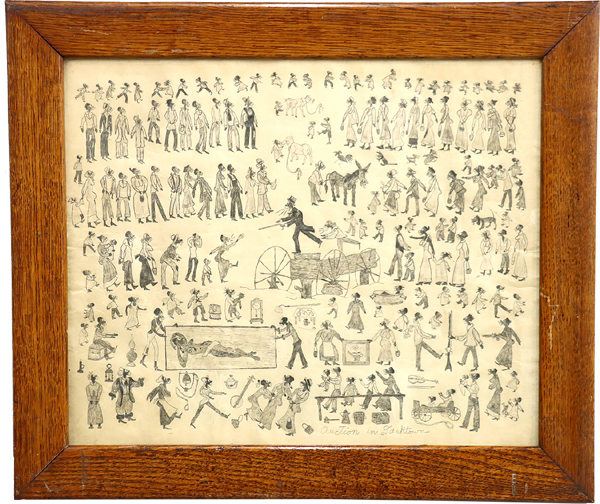 Auction in Darktown